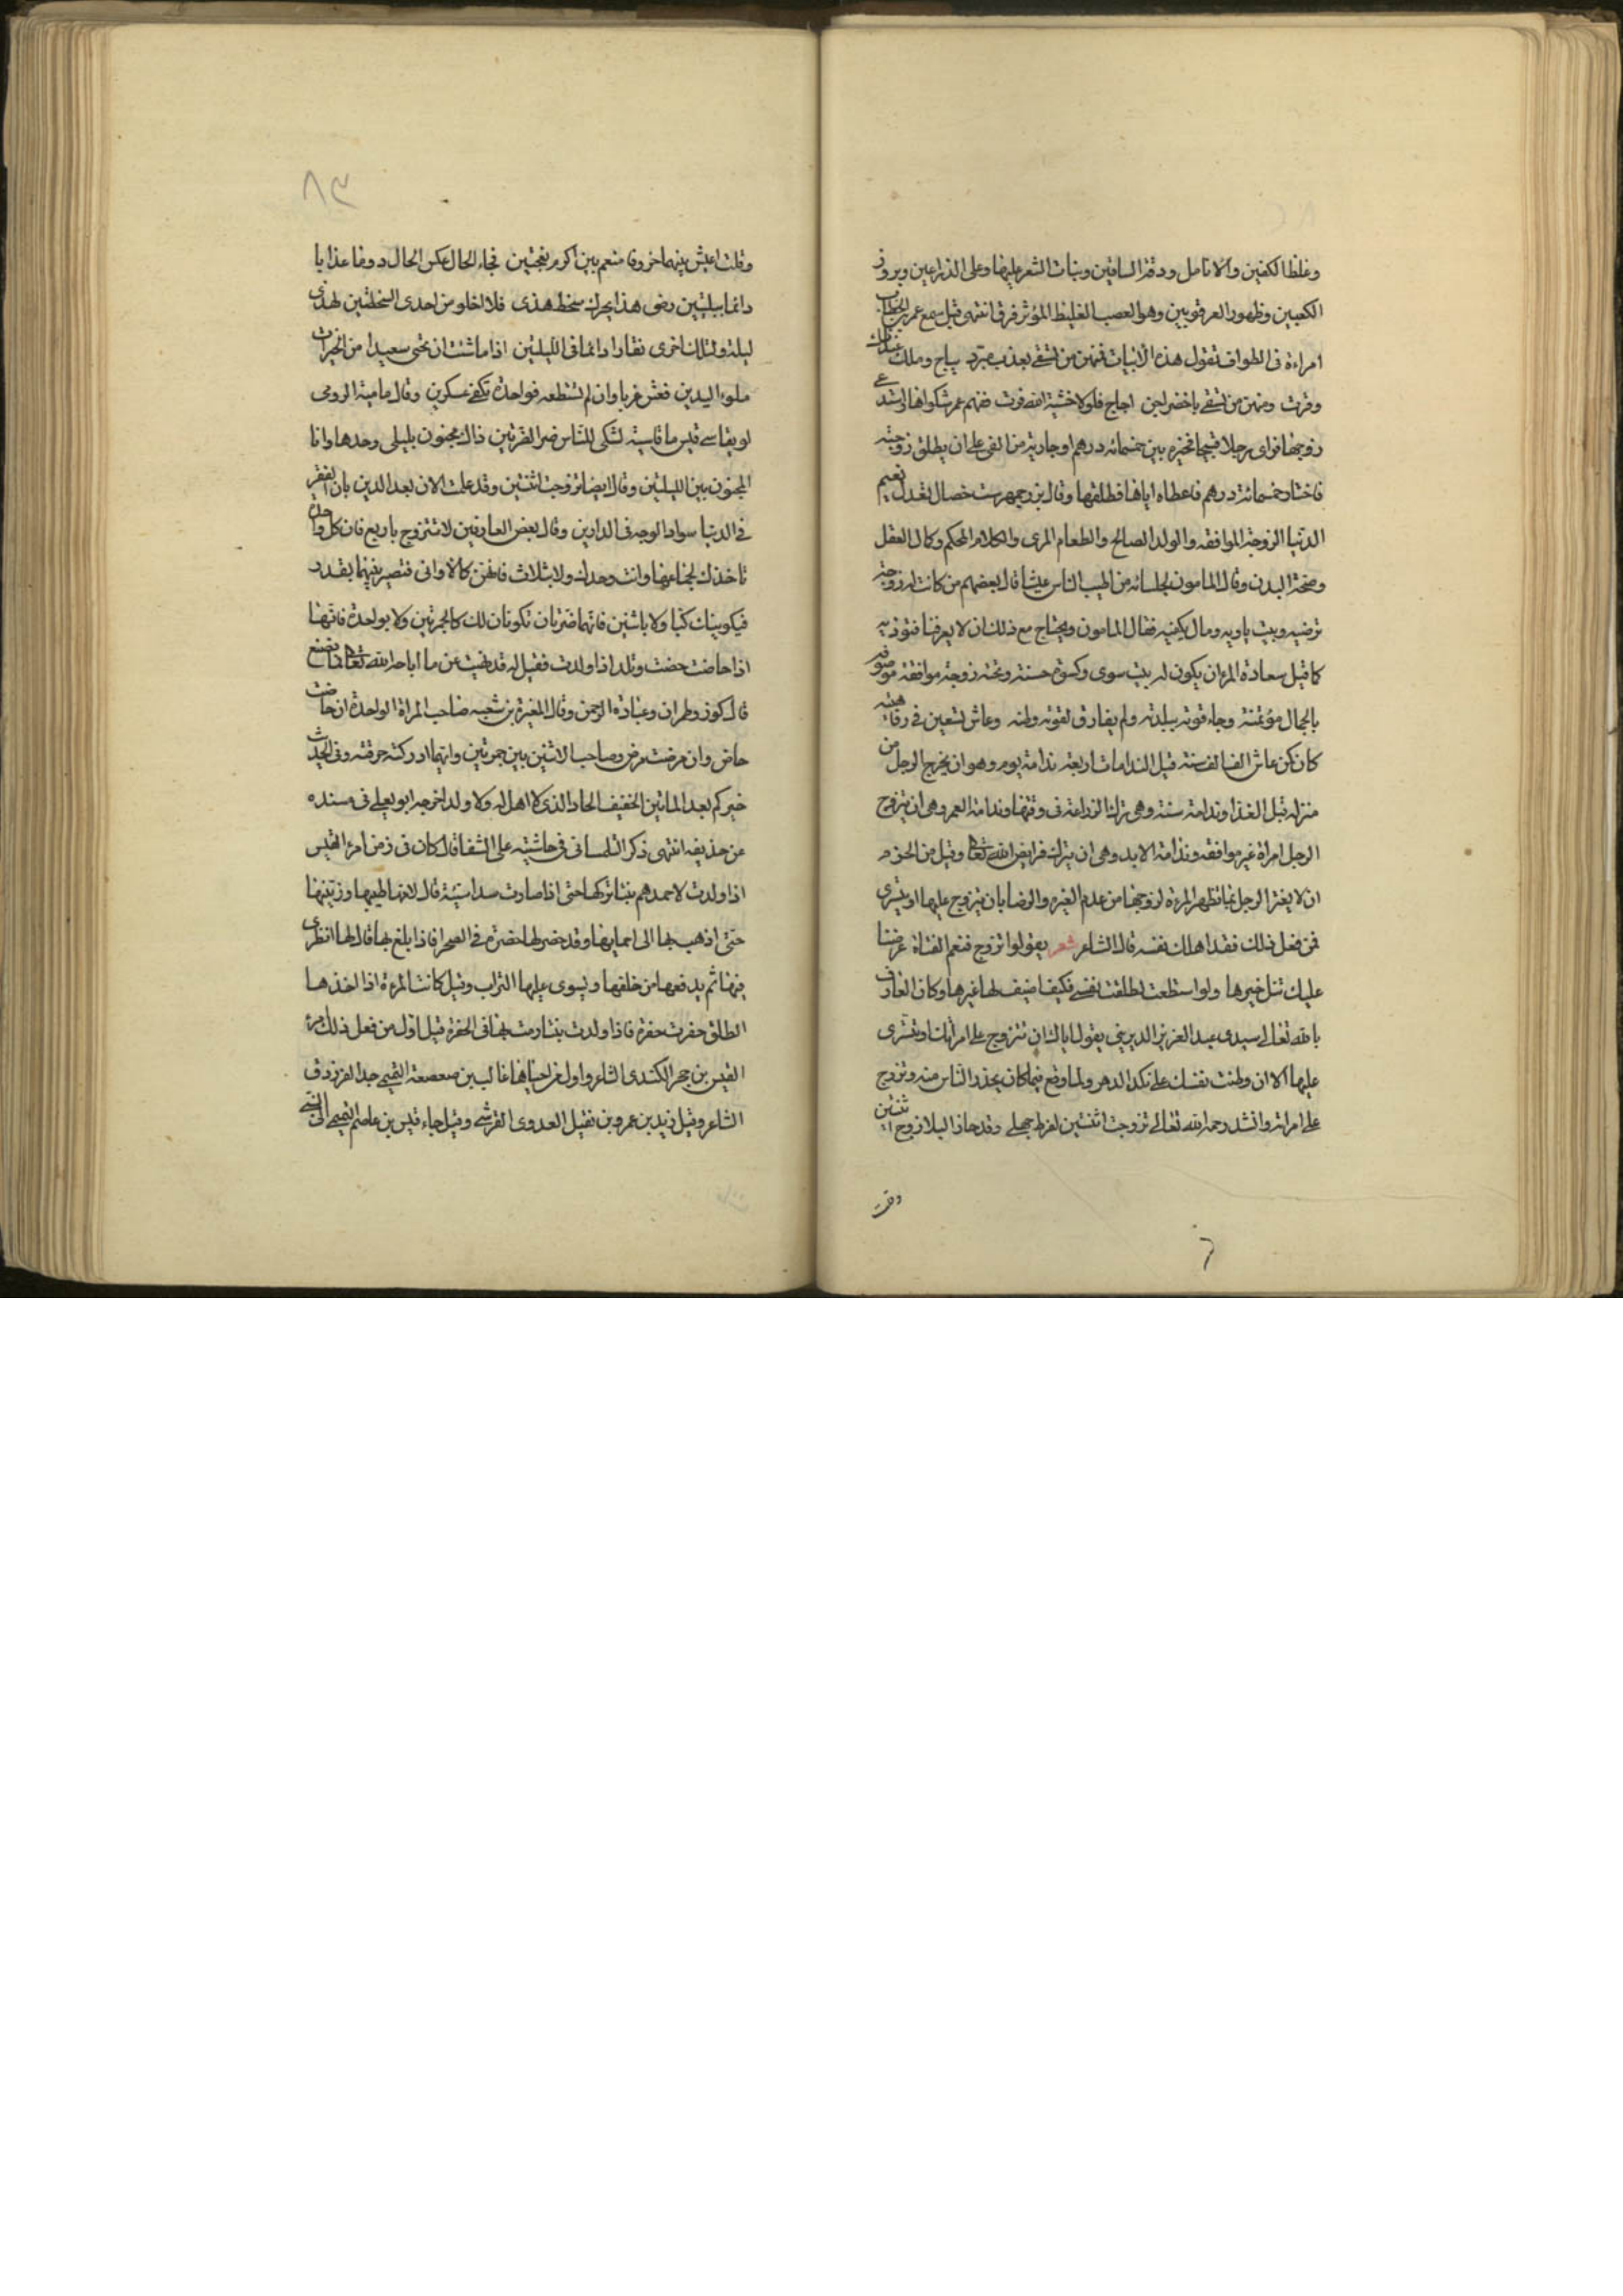 وغلظ الكفين والانامل ودقة الساقين ونبات الشعر عليها وعلى الذراعين وبروز
الكعبين وظهور العرقوبين وهو العصب الغليظ المؤثر فرق انتهى قيل سمع عمر بن الخطاب
امراءة فى الطواف تقول هذه الابيات فمنهن من تسقى بعذب مبرد نباح وملك عند ذلك
وقرت ومنهن من تسقى باخضر اجن اجاج فلولا خشية الله فرت ففهم عمر شكواها
زوجها فراى رجلا قبيحا فخيره بين خمسمائه درهم او جارية من الفى على ان يطلق زوجته
فاختار خمسمائة درهم فاعطاه اياها فطلقها وقال بزرجمهر ست خصال تعدل نعيم
الدنيا الزوجة الموافقه والولد الصالح والطعام المرى والكلام المحكم وكمال العقل
وصحة البدن وقال المامون لجلسائه من اطيب الناس عيشا قال بعضهم من كانت له زوجة
ترضيه وبيت ياويه ومال يكفيه فقال المامون ويحتاج مع ذلك ان لا يعرفنا فنوذيه
كما قيل سعادة المرء ان يكون له بيت سوى وكسوة حسنة وتحته زوجة موافقة موصوفه
بالجمال مؤتمنة وجاء قوته ببلدته ولم يفارق لقوته وطنه وعاش تسعين فى رفاهيه
كان كمن عاش الفا الف سنة قيل الندامات اربعة ندامة يوم وهو ان يخرج الرجل من
منزله قبل الغذا وندامة سنة وهى ترك الزراعة فى وقتها وندامة العمر وهى ان يتزوج
الرجل امراة غير موافقه وندامة الابد وهى ان يترك فرايض الله تعالى وقيل من الحزم
ان لا يغتر الرجل بما تظهر المرءة لزوجها من عدم الغيره والرضا بان يتزوج عليها او يتسرى
فمن فعل ذلك فقد اهلك نفسه قال الشاعر شعر يقولوا تزوج فنعم الفتاة عرضنا
عليك تنل خيرها ولو اسطعت لطلقت نفسى فكيف اضيف لها غيرها وكان العارف
بالله تعالى سيدى عبد العزيز الديرينى يقول اياك ان تتزوج على امراتك او تتسرى
عليها الا ان وطنت نفسك على نكد الدهر ولما وقع فيما كان يحذر الناس منه وتزوج
على امراته وانشد رحمه الله تعالى تزوجت اثنتين لفرط جهلى وقد حاز البلا زوج اثنتين
وقلت
٨٣
وقلت اعيش بينهما خروفا منعم بين اكرم نعجتين فجاء الحال عكس الحال دوما عذابا
دائما ببليتين رضى هذا يحرك سخط هذى فلا اخلو من احدى السخطتين لهذى
ليلة ولتلك اخرى نقارا دائما فى الليلتين اذا ما شئت ان تحيى سعيدا من الخيرات
ملوء اليدين فعش عزبا وان لم تستطعه فواحدة تكفى عسكرين وقال مامية الرومى
لو يقاسى قيس ما قاسيته لشكى للناس ضر الضرتين ذاك مجنون بليلى وحدها وانا
المجنون بين الليلتين وقال ايضا تزوجت اثنتين وقد علمت الان بعد الدين بان الفقر
فى الدنيا سواد الوجه فى الدارين وقال بعض العارفين لا تتزوج باربع فان كل واحدة
تاخذك لجناعها وانت وحدك ولا بثلاث فانهن كالاوانى فتصير بينهما بقدر
فيكوينك كيا ولا باثنين فانهما ضرتان تكونان لك كالجمرتين ولا بواحدة فانها
اذا حاضت حضت وتلد اذا ولدت فقيل له قد نهيت عن ما اباحه الله تعالى فما نصنع
قال كوز وطمران وعبادة الرحمن وقال المغيرة بن شعبه صاحب المراة الواحدة ان حاضت
حاض وان مرضت مرض وصاحب الاثنين بين جمرتين وايتهما ادركته حرقته وفى الحديث
خيركم بعد الماتين الخفيف الحاذ الذى لا اهل له ولا ولد اخرجه ابو يعلى فى مسنده
عن حذيفه انتهى ذكر التلمسانى فى حاشيته على الشفا قال كان فى زمن امرء القيس
اذا ولدت لاحدهم بنتا تركها حتى اذا صارت سداسية قال لامها طيبيها وزينيها
حتى اذهب بها الى احمايها وقد حفر لها حفرة فى الصحرا فاذا بلغ بها قال لها انظرى
فيها ثم يدفعها من خلفها ويسوى عليها التراب وقيل كانت المرءة اذا اخذها
الطلق حفرت حفرة فاذا ولدت بنتا رمت بها فى الحفرة قيل اول من فعل ذلك امرء
القيس بن حجر الكندى الشاعر واول من احياها غالب بن صعصعة التميمى جد الفرزدق
الشاعر وقيل زيد بن عمرو بن نفيل العدوى القرشى وقيل جاء قيس بن عاصم التميمى الى النبى